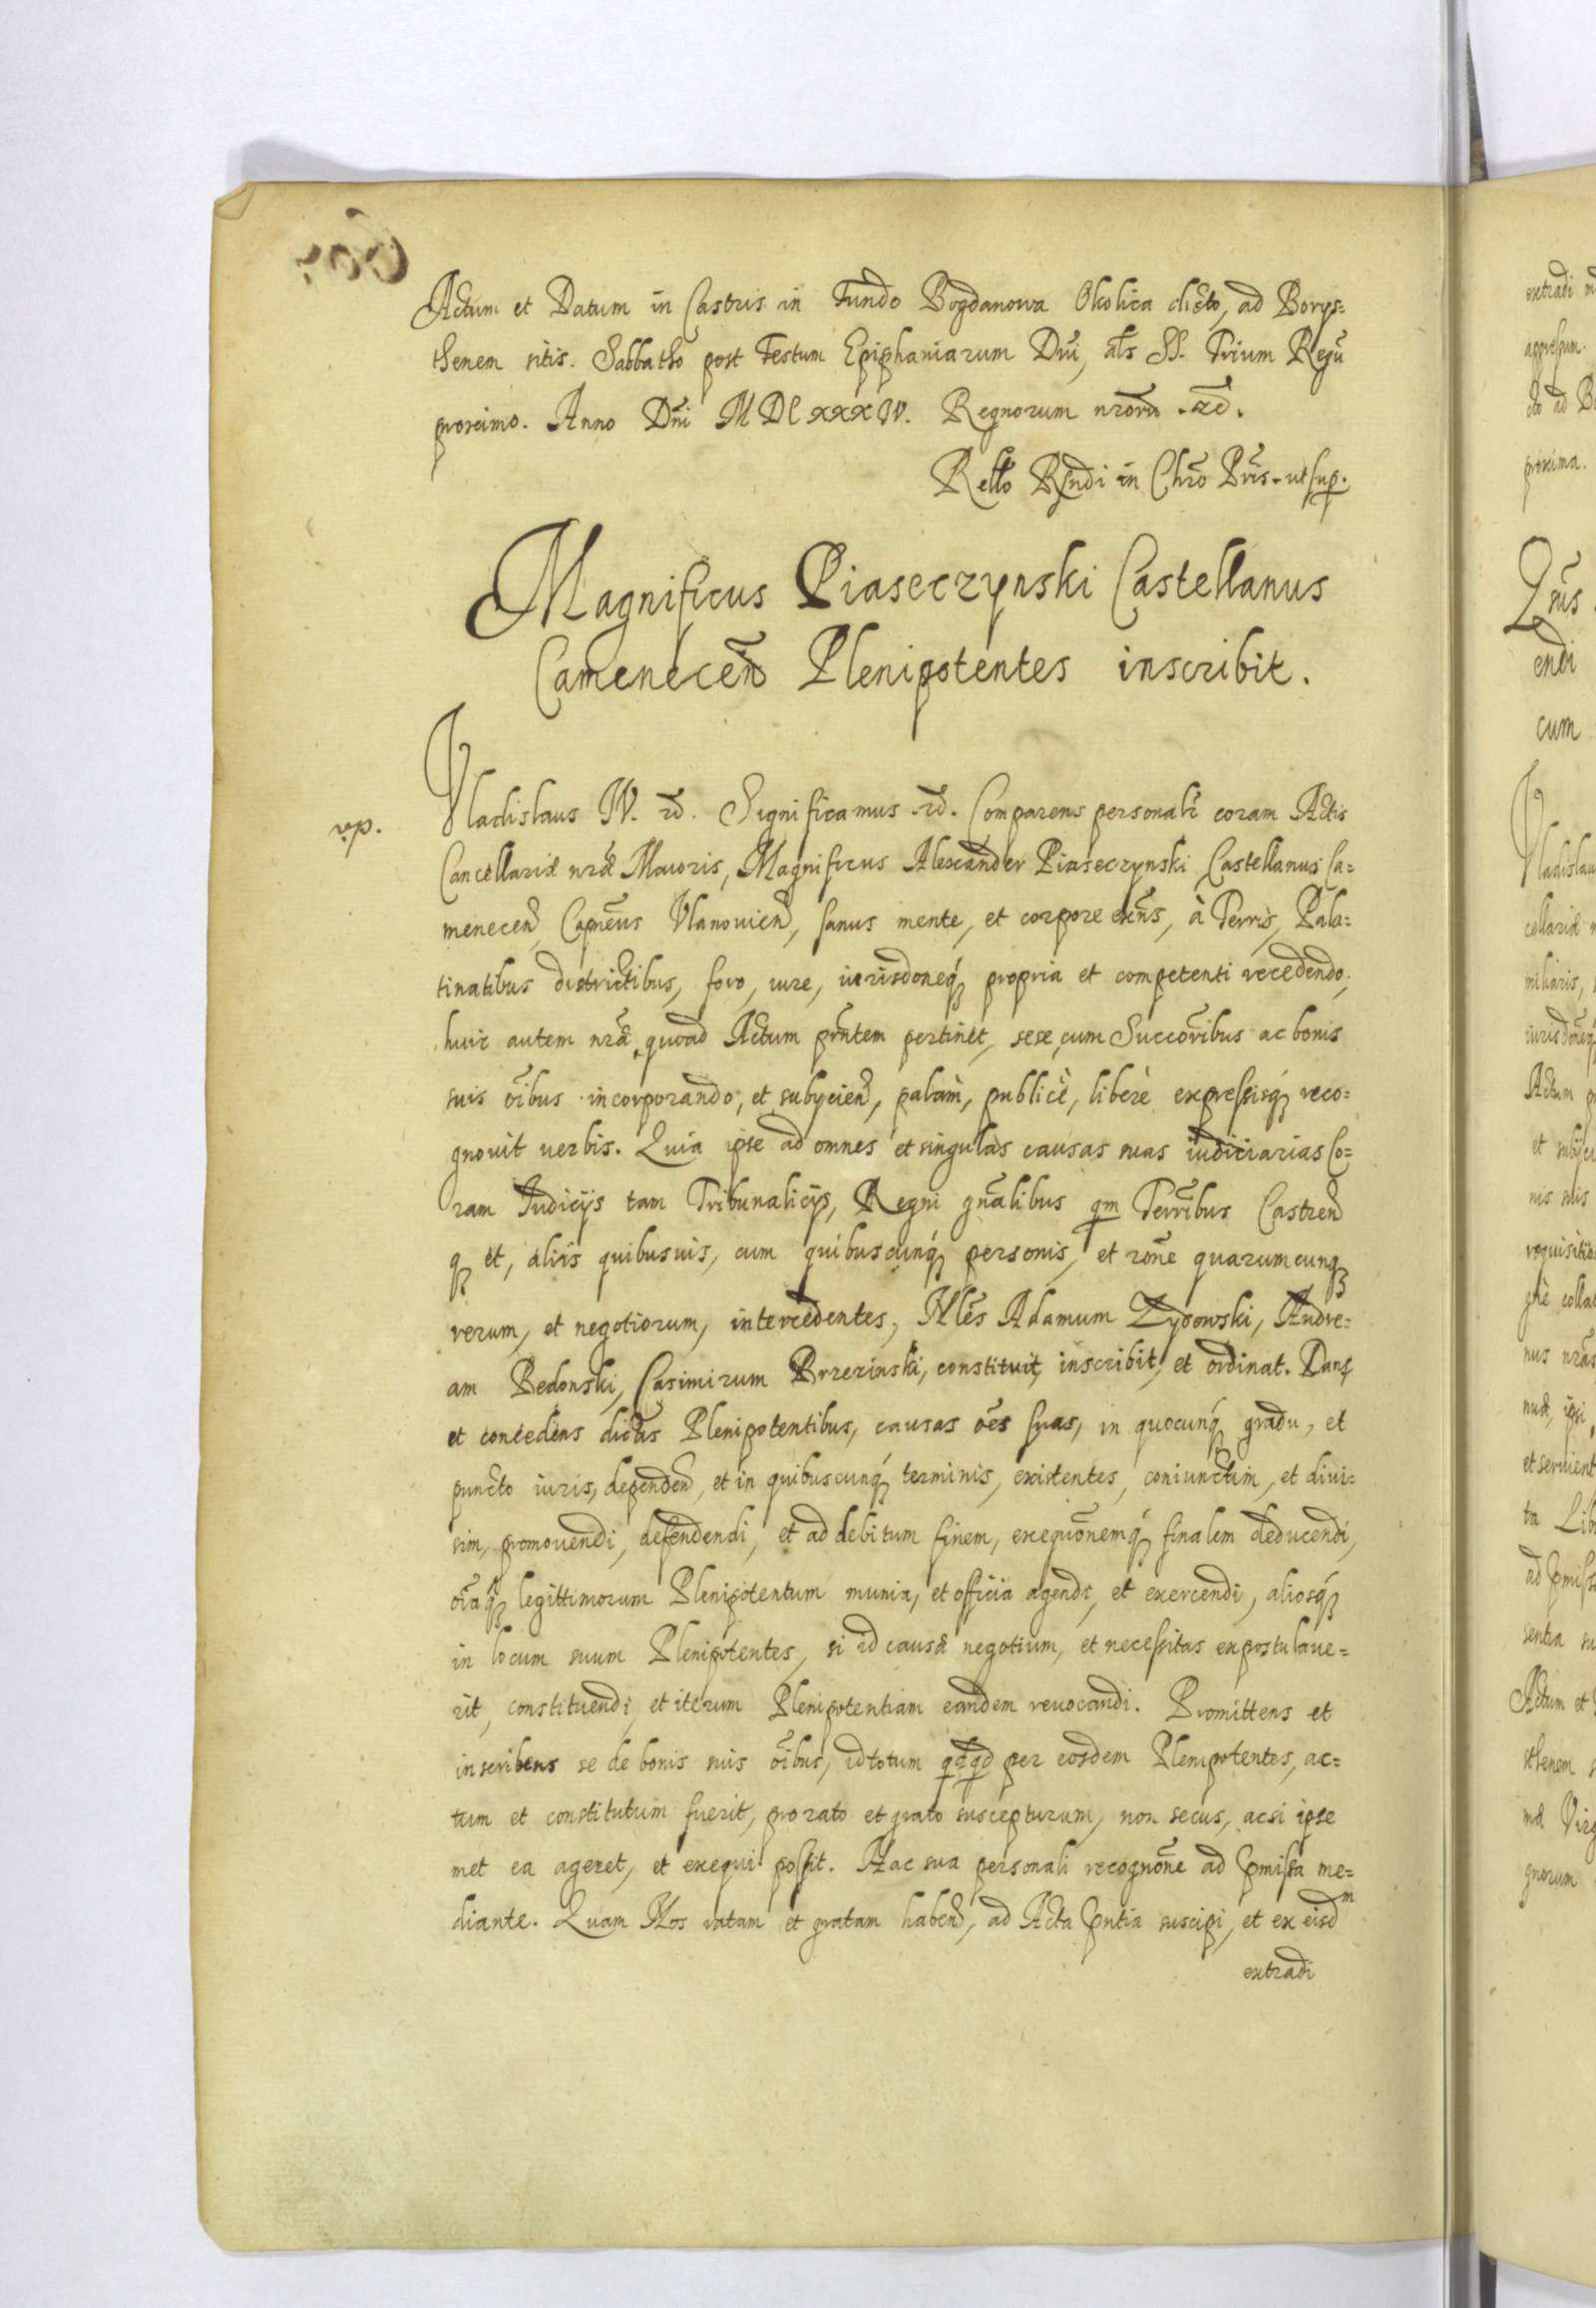 Actum et Datum in Castris in Fundo Bogdanowa Okolica dicto, ad Borys=
thenem sitis. Sabbatho post Festum Epiphaniarum Dnĩ, als SS. Trium Regũ
proximo. Anno Dñi MDCXXXIV. Regnorum nrorũ. &c.
Rello Rndi in Chro Pris. ut sup.
Magnificus Piaseczynski Castellanus
Camenecen̄ Plenipotentes inscribit.
Vladislaus IV. &c. Significamus &c. Comparens personalr̃ coram Actis
Cancellariæ nræ Maioris, Magnificus Alexander Piaseczynski Castellanus Ca=
menecen̄, Capneus Vlanouien̄, sanus mente, et corpore exn̄s, à Terris, Pala=
tinatibus districtibus, foro, iure, iurisdoneq́ propria et competenti recedendo,
huic autem nræ, quoad Actum pr̃ntem pertinet, sese, cum Succoribus ac bonis
suis oĩbus incorporando, et subycien̄, palàm, publicè, liberè expressisq́ reco=
gnouit uerbis. Quia ipse ad omnes et singulas causas suas iudiciarias Co=
ram Iudicijs tam Tribunalicijs, Regni gñalibus qm Terribus Castren̄
q́ et, aliis quibusuis, cum quibuscunq́ personis, et rõne quarumcunq́
rerum, et negotiorum, intercedentes, Nles Adamum Zydowski, Andre=
am Bedonski, Casimirum Brzezinski, constituit, inscribit, et ordinat. Dans
et concedens dictis Plenipotentibus, causas oẽs suas, in quocunq́ gradu, et
puncto iuris, dependen̄, et in quibuscunq́ terminis, existentes, coniunctim, et diui=
sim, promouendi, defendendi, et ad debitum finem, exequõnemq́ finalem deducendi,
oĩaq́ legittimorum Plenipotentum munia, et officia agendi, et exercendi, aliosq́
in locum suum Plenipotentes, si id causæ negotium, et necessitas expostulaue=
rit, constituendi, et iterum Plenipotentiam eandem reuocandi. Promittens et
inscribens se de bonis suis oĩbus, id totum qdqd per eosdem Plenipotentes, ac=
tum et constitutum fuerit, pro rato et grato suscepturum, non secus, acsi ipse
met ea ageret, et exequi possit. Hac sua personali recognõne ad pmissa me=
diante. Quam Nos ratam et gratam haben̄, ad Acta pntia suscipi, et ex eisdm
extradi